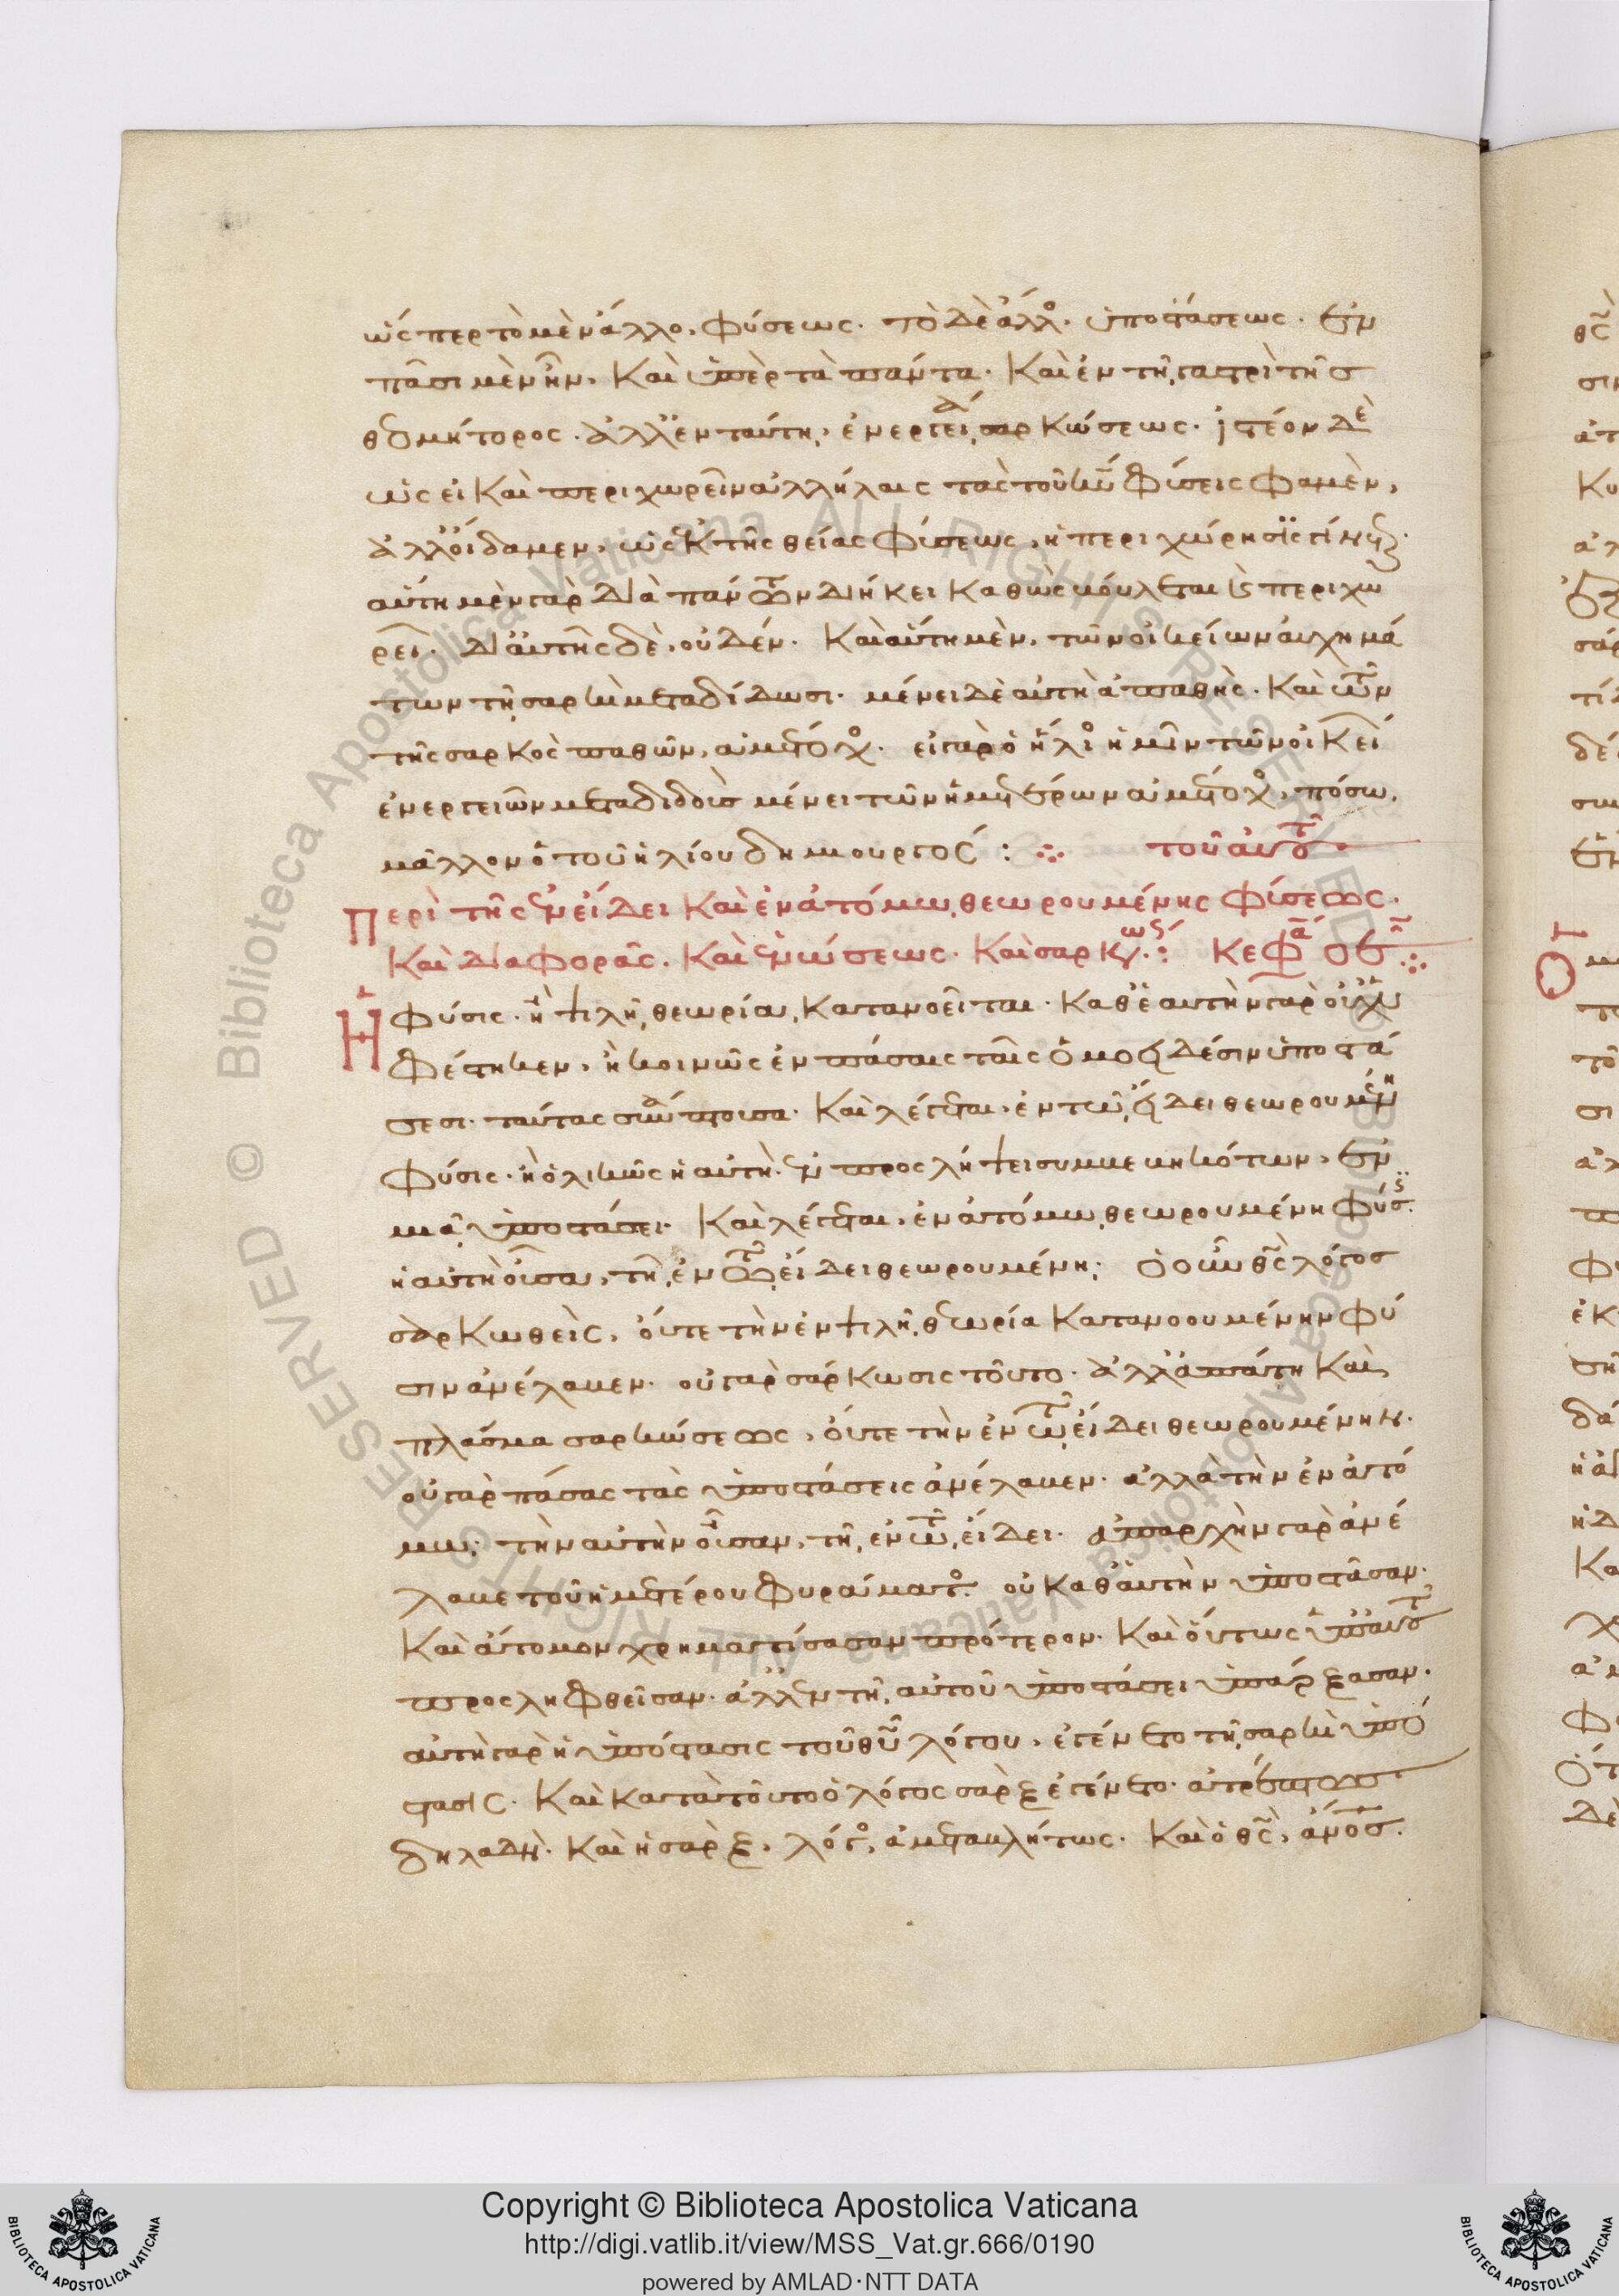 ὥσπερ τὸ μὲν ἄλλο, φύσεως. τὸ δὲ ἄλλο, ὑποστάσεως. ἐν
πᾶσι μὲν ἦν, καὶ ὑπὲρ τὰ πάντα. καὶ ἐν τῇ γαστρὶ τῆς
θεομήτορος. ἀλλ' ἐν ταύτῃ, ἐνεργείᾳ σαρκώσεως. ἰστέον δὲ
ὡς εἰ καὶ περιχωρεῖν ἀλλήλαις τὰς τοῦ κυ φύσεις φαμὲν,
ἀλλ' οἴδαμεν, ὡς ἐκ τῆς θείας φύσεως, ἡ περιχώρησις γίνεται.
αὕτη μὲν γὰρ διὰ πάντων διήκει καθὼς βούλεται καὶ περιχω
ρεῖ. δι' αὐτῆς δὲ, οὐδέν. καὶ αὕτη μὲν, τῶν οἰκείων αὐχημά
των τῇ σαρκὶ μεταδίδωσι. μένει δὲ αὐτὴ ἀπαθὴς. καὶ τῶν
τῆς σαρκὸς παθῶν, ἀμέτοχος. εἰ γὰρ ὁ ἥλιος ἡμῖν τῶν οἰκείων
ἐνεργειῶν μεταδιδοὺς μένει τῶν ἡμετέρων ἀμέτοχος, πόσῳ
μᾶλλον ὁ τοῦ ἡλίου δημιουργός: τοῦ αὐτοῦ
Περὶ τῆς ἐν εἴδει καὶ ἐν ἀτόμῳ θεωρουμένης φύσεως.
καὶ διαφορᾶς. καὶ ἑνώσεως. καὶ σαρκώσεως: κεφα
Ἡ φύσις. ἢ ψιλῇ θεωρίᾳ κατανοεῖται. καθ' ἑαυτὴν γὰρ οὐχ
ὑφέστηκεν, ἢ κοινῶς ἐν πάσαις ταῖς ὁμοειδέσιν ὑποστά
σεσι. ταύτας συνάπτουσα. καὶ λέγεται, ἐν τῷ εἴδει θεωρουμένη
φύσις. ἢ ὁλικῶς ἡ αὐτὴ. ἐν προσλήψει συμβεβηκότων, ἐν
μιᾷ ὑποστάσει. καὶ λέγεται, ἐν ἀτόμῳ θεωρουμένη φύσις.
ἡ αὐτὴ οὖσα, τῇ ἐν τῷ εἴδει θεωρουμένῃ. ὁ οὖν θς λόγος
σαρκωθεὶς, οὔτε τὴν ἐν ψιλῇ θεωρίᾳ κατανοουμένην φύ
σιν ἀνέλαβεν. οὐ γὰρ σάρκωσις τοῦτο. ἀλλ' ἀπάτη καὶ
πλάσμα σαρκώσεως, οὔτε τὴν ἐν τῷ εἴδει θεωρουμένην.
οὐ γὰρ πάσας τὰς ὑποστάσεις ἀνέλαβεν. ἀλλὰ τὴν ἐν ἀτό
μῳ. τὴν αὐτὴν οὖσαν, τῇ ἐν τῷ εἴδει. ἀπαρχὴν γὰρ ἀνέ
λαβε τοῦ ἡμετέρου φυράματος. οὐ καθ' αὑτὴν ὑποστᾶσαν.
καὶ ἄτομον χρηματίσασαν πρότερον. καὶ οὕτως ὑπ' αὐτοῦ
προσληφθεῖσαν. ἀλλ' ἐν τῇ αὐτοῦ ὑποστάσει ὑπάρξασαν.
αὐτὴ γὰρ ἡ ὑπόστασις τοῦ θυ λόγου, ἐγένετο τῇ σαρκὶ ὑπό
στασις. καὶ κατὰ τοῦτο ὁ λόγος σὰρξ ἐγένετο. ἀτρέπτως
δηλαδὴ. καὶ ἡ σὰρξ, λόγος, ἀμεταβλήτως. καὶ ὁ θς, ἄνος.
Copyright © Biblioteca Apostolica Vaticana
http://digi.vatlib.it/view/MSS_Vat.gr.666/0190
powered by AMLAD·NTT DATA